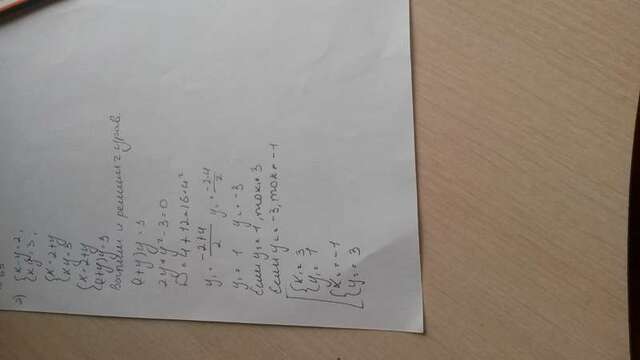 2) { x-y=2,
{ xy=3;
{ x=2+y
{ xy=3
{ x=2+y
(2+y)y=3
решим 2 урав.
(2+y)y=3
2y+y²-3=0
D=4+12=16=4²
y₁=(-2+4)/2 y₂=(-2-4)/2
y₁=1 y₂=-3
Если y=1, то x=3
Если y=-3, то x=-1
[ { x₁=3
{ y₁=1
{ x₂=-1
{ y₂=3